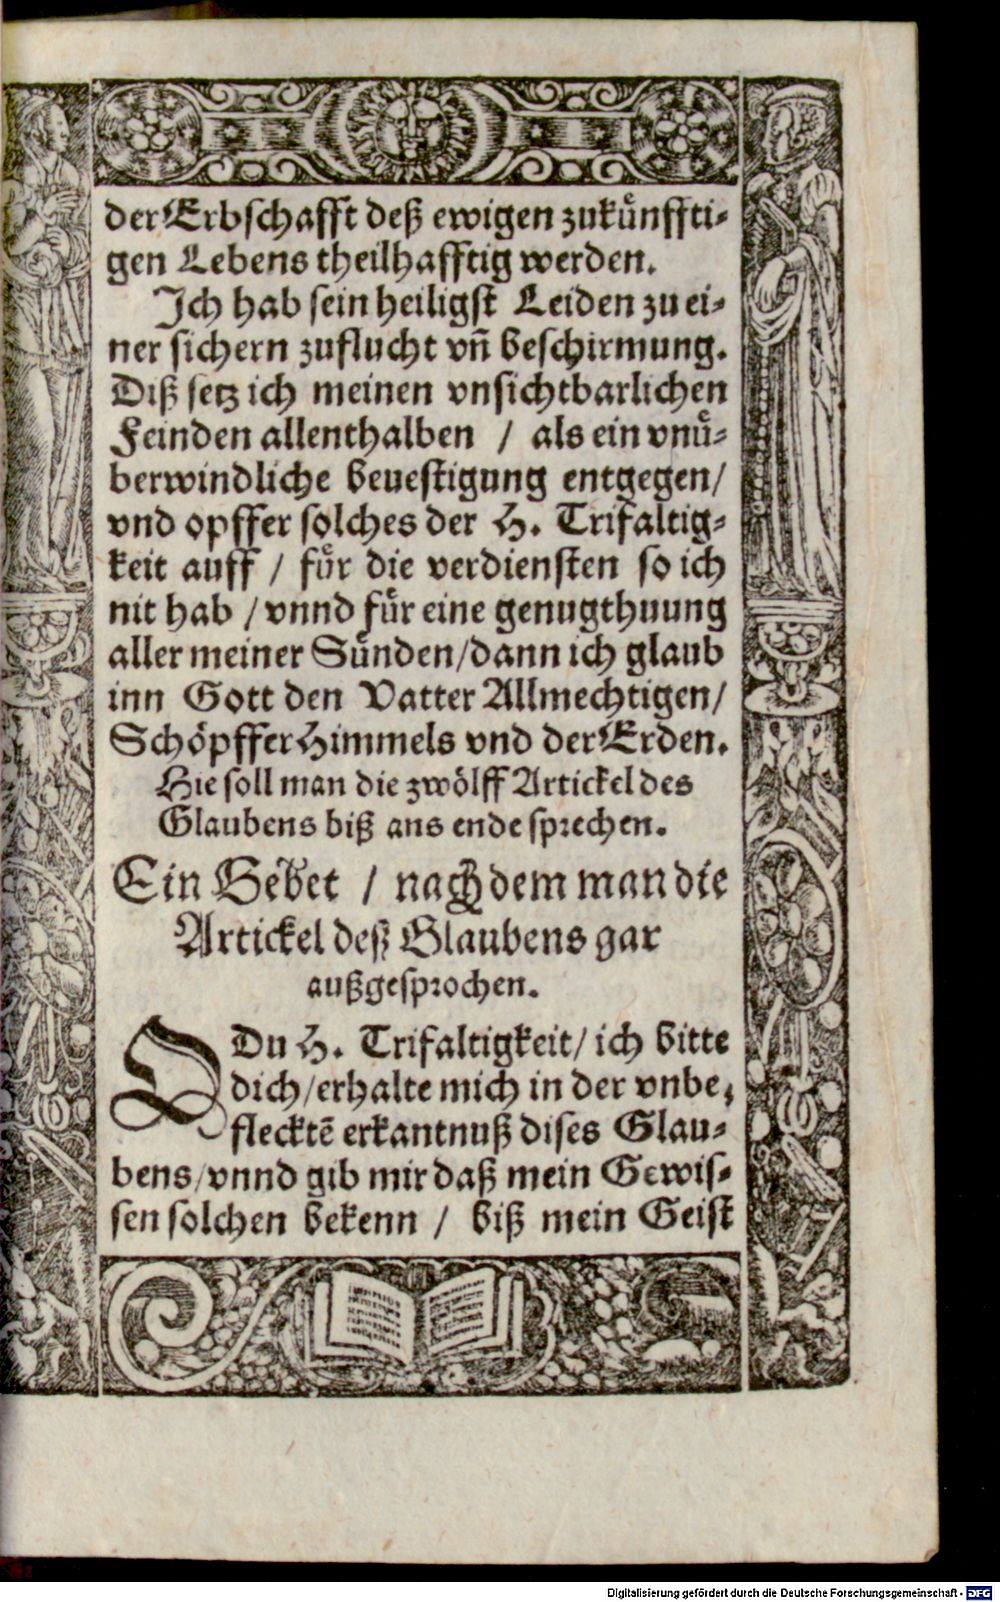 der Erbschafft deß ewigen zukuͤnffti-
gen Lebens theilhafftig werden.
Ich hab sein heiligst Leiden zu ei-
ner sichern zuflucht vñ beschirmung.
Diß setz ich meinen vnsichtbarlichen
Feinden allenthalben / als ein vnuͤ-
berwindliche beuestigung entgegen/
vnd opffer solches der H. Trifaltig-
keit auff / fuͤr die verdiensten so ich
nit hab / vnnd fuͤr eine genugthuung
aller meiner Suͤnden/dann ich glaub
inn Gott den Vatter Allmechtigen/
Schöpffer Himmels vnd der Erden.
Hie soll man die zwölff Artickel des
Glaubens biß ans ende sprechen.
Ein Gebet / nach dem man die
Artickel deß Glaubens gar
außgesprochen.
O Du H. Trifaltigkeit/ ich bitte
dich/erhalte mich in der vnbe-
flecktē erkantnuß dises Glau-
bens/vnnd gib mir daß mein Gewis-
sen solchen bekenn / biß mein Geist
Digitalisierung gefördert durch die Deutsche Forschungsgemeinschaft - DFG